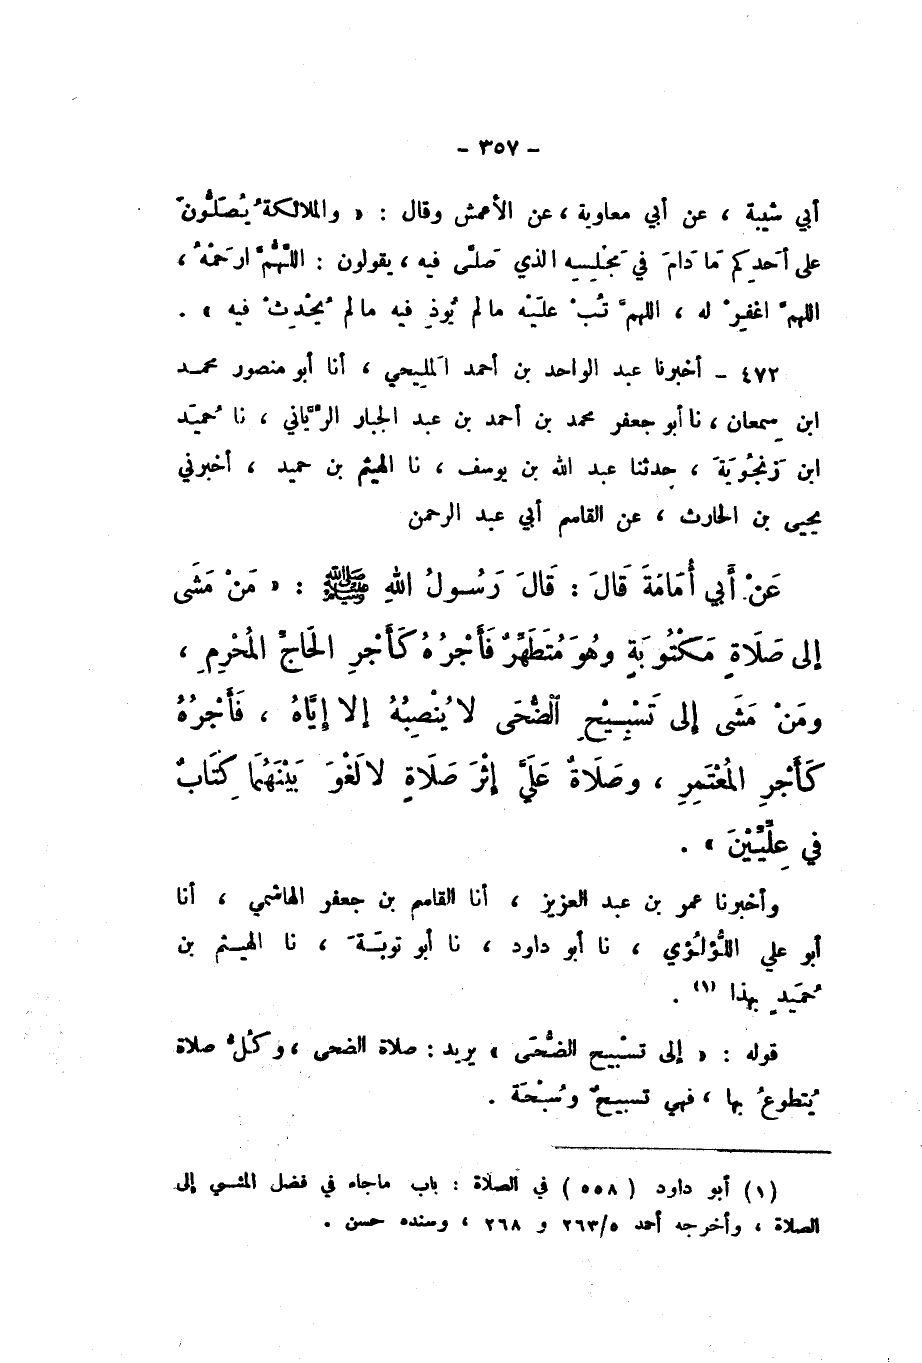 - ٣٥٧ -
أبي شيبة ، عن أبي معاوية ، عن الأعمش وقال : « والملائكةُ يُصَلُّونَ
على أحَدِكم مَا دَامَ في مَجْلِسِه الذي صَلَّى فيه ، يقولون : اللَّهُمَّ ارحَمْهُ ،
اللهمَّ اغفِرْ له ، اللهمَّ تُبْ علَيْه مالم يُؤذِ فيه مالم يُحْدِثْ فيه » .
٤٧٢ - أخبرنا عبد الواحد بن أحمد المَلِيحي ، أنا أبو منصور محمد
ابن سِمعان ، نا أبو جعفر محمد بن أحمد بن عبد الجبار الرَّيَّاني ، نا حُميَد
ابن زَنجُويَةَ ، حدثنا عبد الله بن يوسف ، نا الهيثم بن حميد ، أخبرني
يحيى بن الحارث ، عن القاسم أبي عبد الرحمن
عَنْ أَبي أُمَامَةَ قَالَ : قَالَ رَسُولُ اللهِ ﷺ : « مَنْ مَشَى
إلى صَلَاةٍ مَكْتُوبَةٍ وهُوَ مُتَطَهِّرٌ فَأَجْرُهُ كَأَجْرِ الحَاجِّ المُحْرِمِ ،
ومَنْ مَشَى إلى تَسْبِيْحِ الضُّحَى لا يُنْصِبُهُ إلا إيَّاهُ ، فَأَجْرُهُ
كَأَجْرِ المُعْتَمِرِ ، وصَلَاةٌ عَلَى إثْرَ صَلَاةٍ لا لَغْوَ بَيْنَهُمَا كِتَابٌ
في عِلِّيِّيْنَ » .
وأخبرنا عمر بن عبد العزيز ، أنا القاسم بن جعفر الهاشمي ، أنا
أبو علي اللُّؤلُؤي ، نا أبو داود ، نا أبو توبَةَ ، نا الهيثم بن
حُمَيدٍ بهذا (١) .
قوله : « إلى تسْبِيح الضُّحَى » يريد : صلاة الضحى ، وكلُّ صلاة
يُتطوعُ بها ، فهي تسبيحٌ وسُبْحَة .
(١) أبو داود ( ٥٥٨ ) في الصلاة : باب ماجاء في فضل المشي إلى
الصلاة ، وأخرجه أحمد ٢٦٣/٥ و ٢٦٨ ، وسنده حسن .